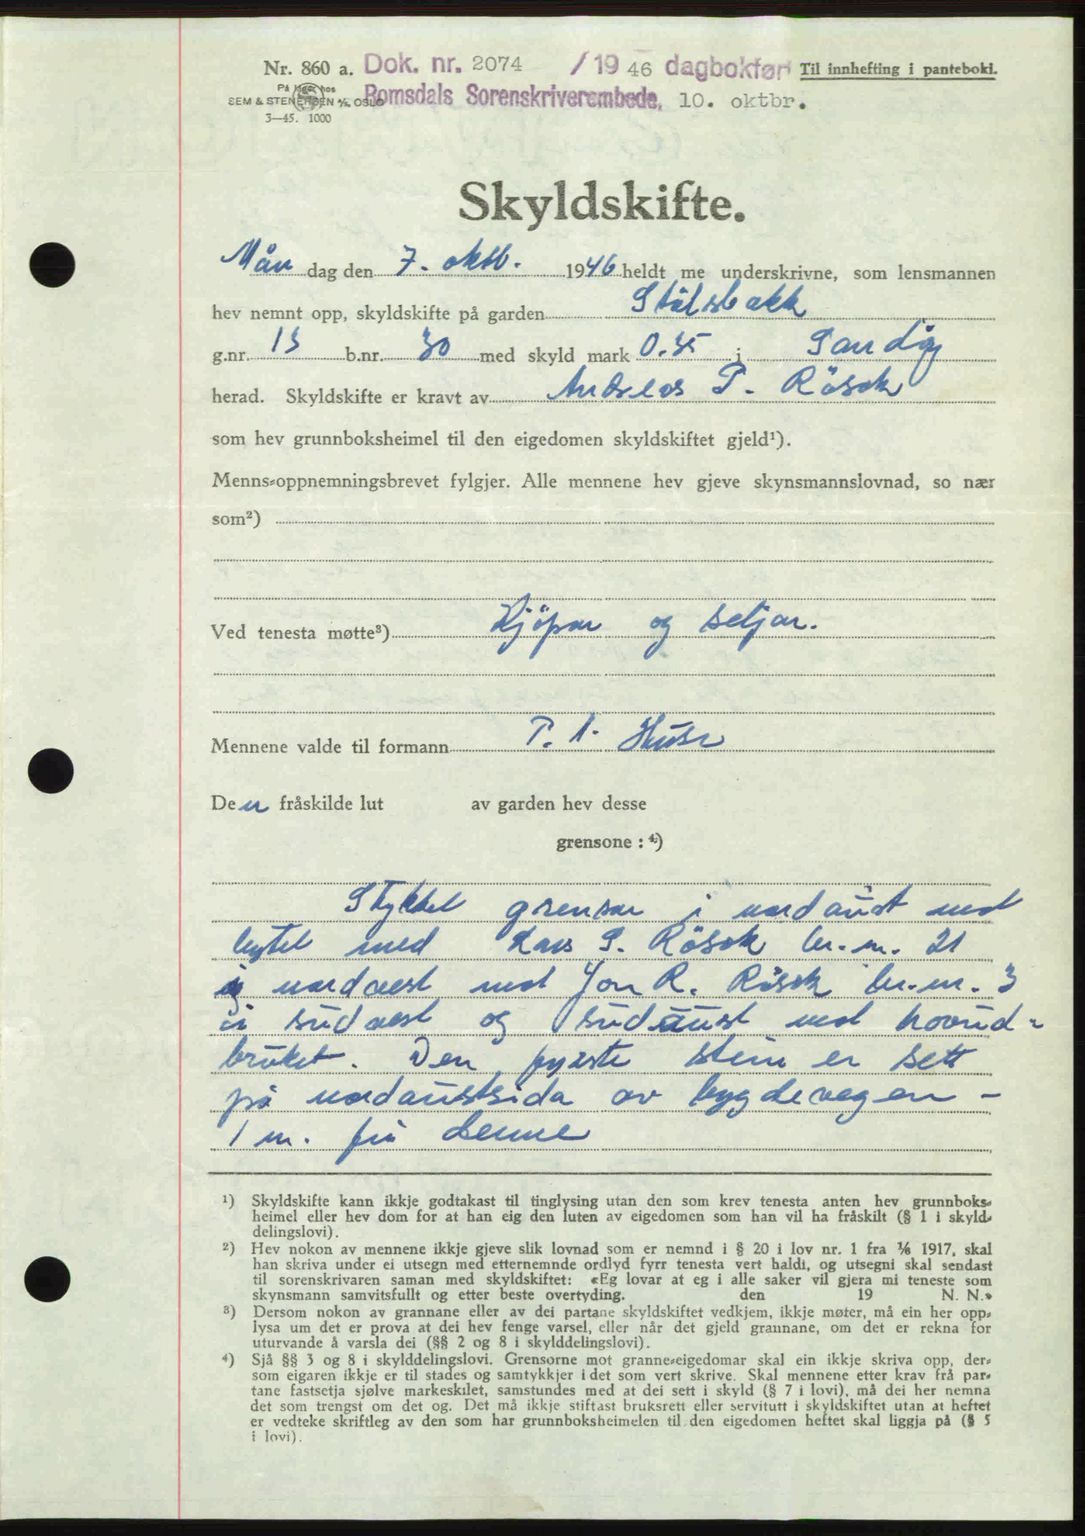 Nr. 860 a. Dok. nr. 2074 / 19 46 dagbokført Til innhefting i panteboki.
På lager hos
SEM & STENERSEN A/S, OSLO Romsdals Sorenskriverembede, 10. oktbr.
3—45. 1000
Skyldskifte.
Mån dag den 7. oktb. 1946 heldt me underskrivne, som lensmannen
hev nemnt opp, skyldskifte på garden Stålsbakk
g.nr. 13 b.nr. 30 med skyld mark 0.35 i Sandøy
herad. Skyldskifte er kravt av Andreas P. Rösok
som hev grunnboksheimel til den eigedomen skyldskiftet gjeld¹).
Menns-oppnemningsbrevet fylgjer. Alle mennene hev gjeve skynsmannslovnad, so nær
som²)
Ved tenesta møtte³) Kjöpar og seljar.
Mennene valde til formann P. A. Huse
Den fråskilde lut av garden hev desse
grensone : ⁴)
Stykket grensar i nordaust med
bytet med Lars S. Rösok br. nr. 21
i nordvest med Jon R. Rösok br. nr. 3
i sudvest og sudaust med hovud-
bruket. Den fyrste stein er sett
på nordaustsida av bygdevegen –
1 m. frå denne
¹) Skyldskifte kann ikkje godtakast til tinglysing utan den som krev tenesta anten hev grunnboks-
heimel eller hev dom for at han eig den luten av eigedomen som han vil ha fråskilt (§ 1 i skyld-
delingslovi).
²) Hev nokon av mennene ikkje gjeve slik lovnad som er nemnd i § 20 i lov nr. 1 fra 1/6 1917, skal
han skriva under ei utsegn med etternemnde ordlyd fyrr tenesta vert haldi, og utsegni skal sendast
til sorenskrivaren saman med skyldskiftet: «Eg lovar at eg i alle saker vil gjera mi teneste som
skynsmann samvitsfullt og etter beste overtyding. den 19 N. N.»
³) Dersom nokon av grannane eller av dei partane skyldskiftet vedkjem, ikkje møter, må ein her opp-
lysa um det er prova at dei hev fenge varsel, eller når det gjeld grannane, om det er rekna for
uturvande å varsla dei (§§ 2 og 8 i skylddelingslovi).
⁴) Sjå §§ 3 og 8 i skylddelingslovi. Grensorne mot granne-eigedomar skal ein ikkje skriva opp, der-
som eigaren ikkje er til stades og samtykkjer i det som vert skrive. Skal mennene etter krav frå par-
tane fastsetja sjølve markeskilet, samstundes med at dei sett i skyld (§ 7 i lovi), må dei her nemna
det som trengst om det og. Det må ikkje stiftast bruksrett eller servitutt i skyldskiftet utan at heftet
er vedteke skriftleg av den som har grunnboksheimelen til den eigedomen heftet skal liggja på (§ 5
i lovi).